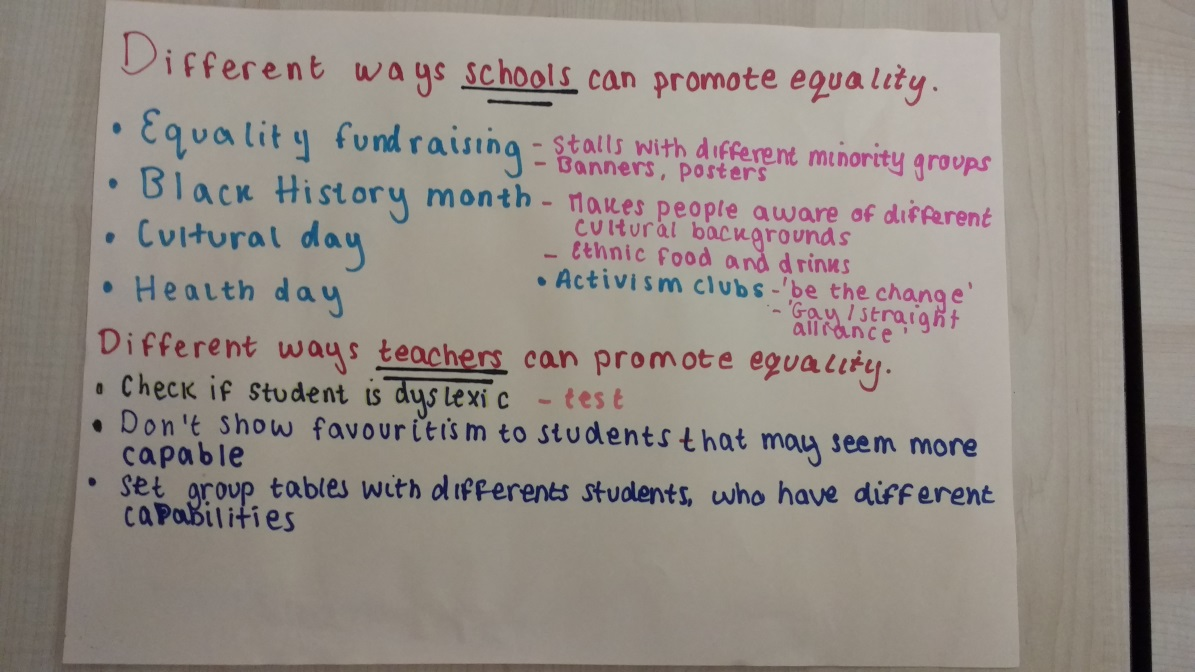 Different ways schools can promote equality.
• Equality fundraising - Stalls with different minority groups
- Banners, posters
• Black History month - Makes people aware of different
cultural backgrounds
• Cultural day
- Ethnic food and drinks
• Health day
• Activism clubs - 'be the change'
- 'Gay / straight
allirance'
Different ways teachers can promote equality.
• Check if student is dyslexic - test
• Don't show favouritism to students that may seem more
capable
• Set group tables with differents students, who have different
capabilities